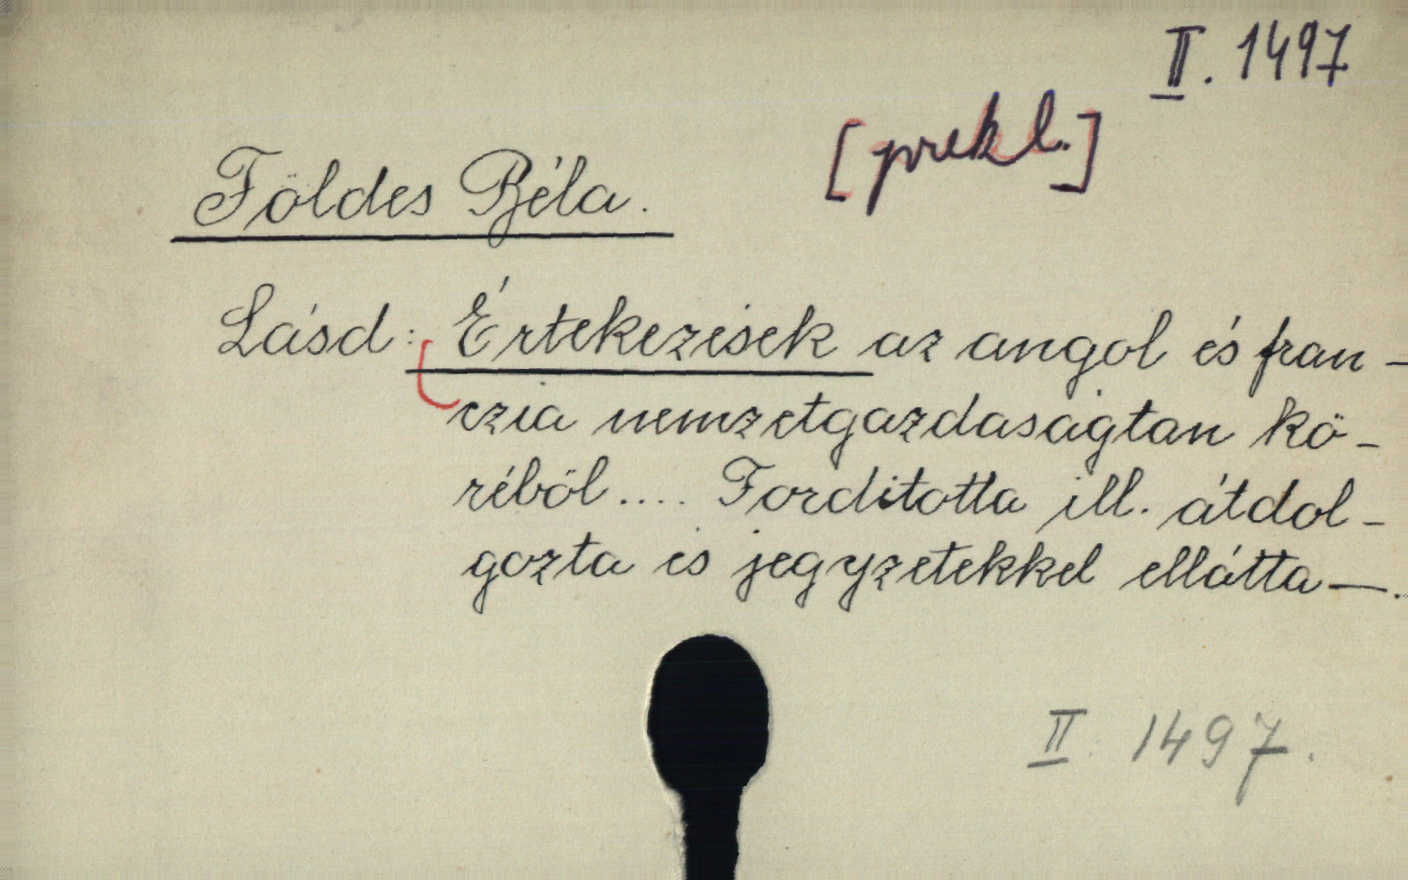 II. 1497
[prekl.]
Földes Béla.
Lásd: Értekezések az angol és fran-
czia nemzetgazdaságtan kö-
réből.... Fordította ill. átdol-
gozta és jegyzetekkel ellátta —.
II. 1497.